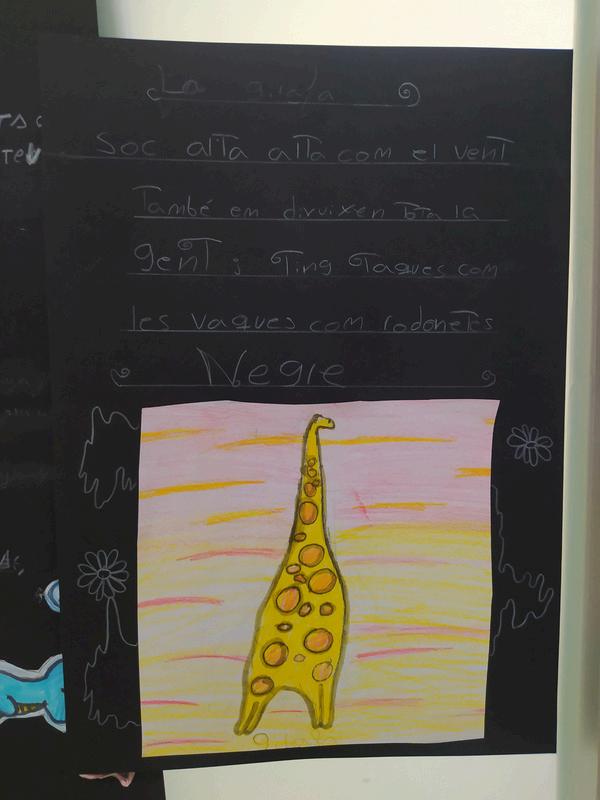 La girafa
Soc alta alta com el vent
També em divuixen Bta la
gent i Ting Taques com
les vaques com rodonetes
Negre